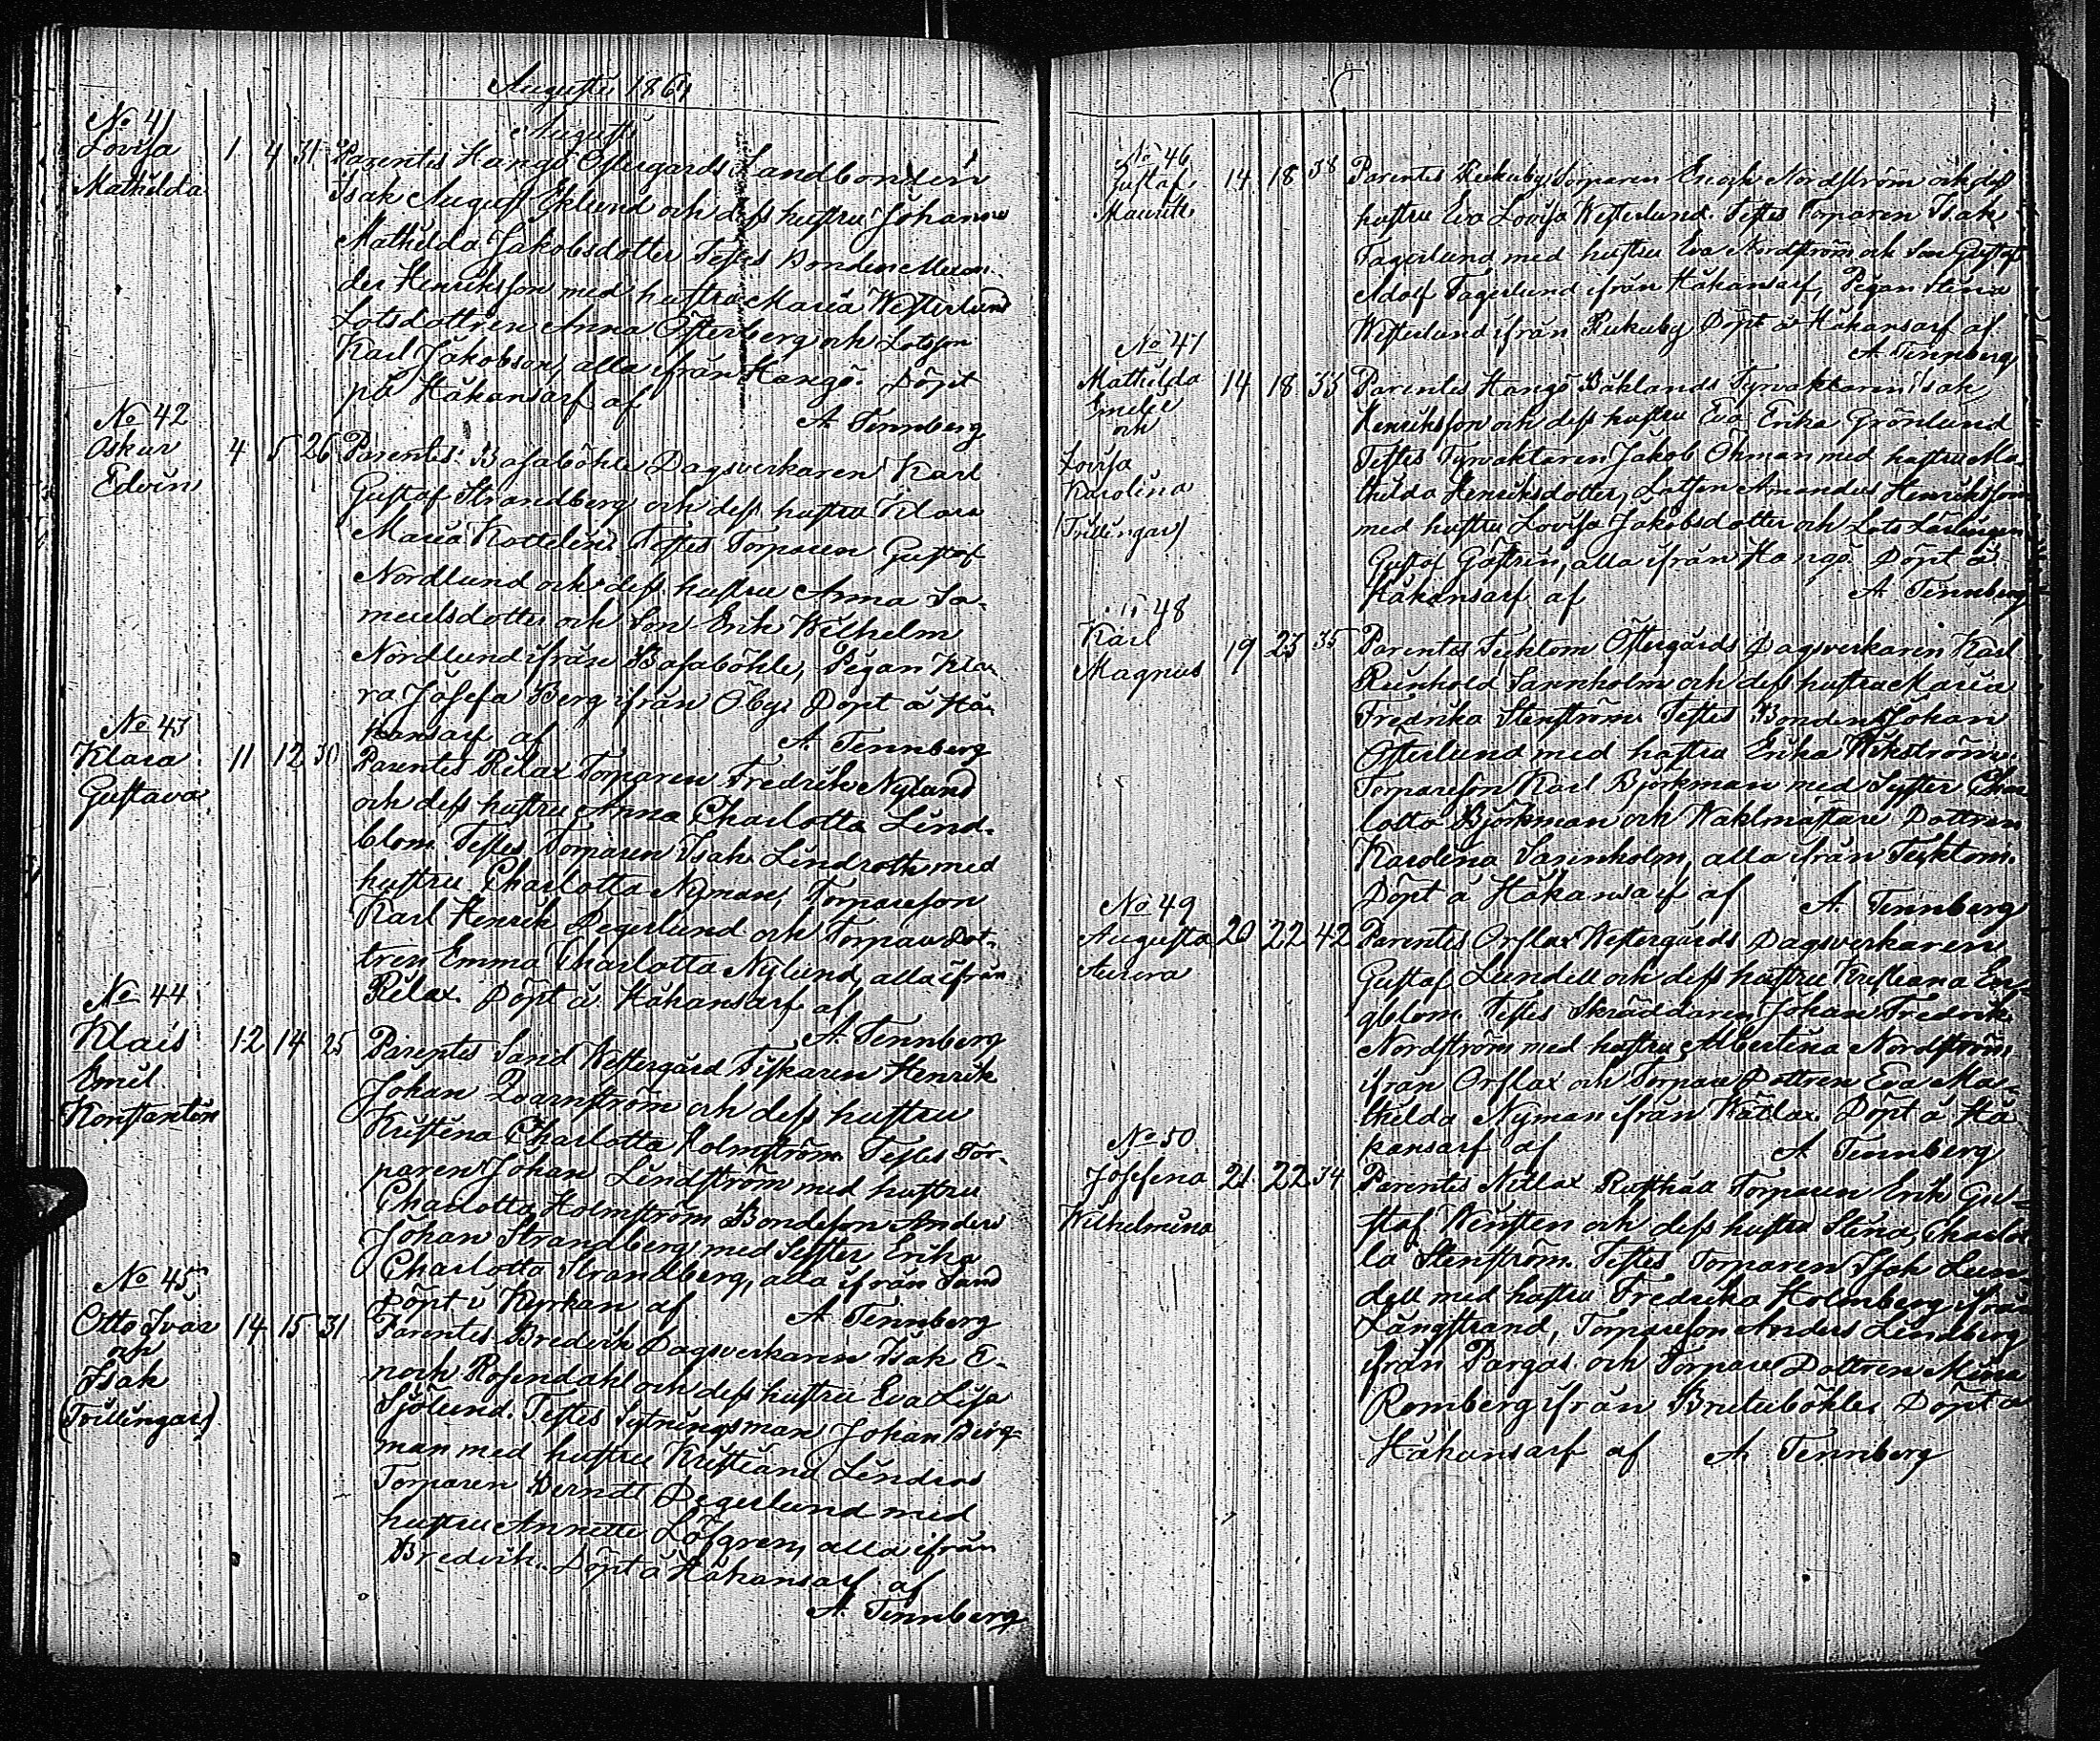 Augusti 1864
Augusti
No 41
Lovisa 1 4 31 Parentes Hangö Östergårds Landbonden
Mathilda Isak August Eklund och dess hustru Johanna
Mathilda Jakobsdotter Testes Bonden Alexan-
der Henriksson med hustru Maria Westerlund
Lotsdottren Anna Österberg och Lotsson
Karl Jakobson, alla ifrån Hangö. Döpt
på Håkansarf af
A. Tennberg
No 42
Oskar 4 5 26 Parentes Basaböhle Dagsverkaren Karl
Edvin Gustaf Strandberg och dess hustru Klara
Maria Kottelin. Testes Torparen Gustaf
Nordlund och dess hustru Anna Sa-
muelsdotter och Son Erik Wilhelm
Nordlund ifrån Basaböhle, Pigan Kla-
ra Josefa Berg ifrån Öby. Döpt å Hå-
kansarf af A. Tennberg
No 43
Klara 11 12 30 Parentes Rilax Torparen Fredrik Nylund
Gustava och dess hustru Anna Charlotta Lind-
blom. Testes Torparen Isak Lindroth med
hustru Charlotta Nyman, Torpareson
Karl Henrik Degerlund och Torpare Dot-
tren Emma Charlotta Nylund, alla ifrån
Rilax. Döpt å Håkansarf af
A. Tennberg
No 44
Klais 12 14 25 Parentes Sand Westergård Fiskaren Henrik
Emil Johan Qvarnström och dess hustru
Konstantin Kristina Charlotta Holmström Testes Tor-
paren Johan Lindström med hustru
Charlotta Holmström Bondeson Anders
Johan Strandberg med Syster Erika
Charlotta Strandberg, alla ifrån Sand
Döpt i Kyrkan af A. Tennberg
No 45
Otto Ivar 14 15 31 Parentes Bredvik Dagsverkaren Isak E-
och noch Rosendahl och dess hustru Eva Lisa
Isak Sjölund. Testes Sytningsman Johan Berg-
(Tvillingar) man med hustru Kristiana Lindros
Torparen Berndt Degerlund med
hustru Annette Löfgren, alla ifrån
Bredvik. Döpt å Håkansarf af
A. Tennberg
No 46
Gustaf 14 18 38 Parentes Torparen Enoch Nordström och dess
Maurits hustru Eva Lovisa Westerlund. Testes Torparen Isak
Fagerlund med hustru Eva Nordström och Son Gustaf
Adolf Fagerlund ifrån Håkansarf, Pigan Stina
Westerlund ifrån Döpt å Håkansarf af
A. Tennberg
No 47
Mathilda 14 18 33 Parentes Hangö Båklands Fyrvaktaren Isak
Emelie Henriksson och dess hustru Eva Erika Grönlund
och Testes Fyrvaktaren Jakob Öhman med hustru Ma-
Lovisa thilda Henriksdotter, Lotsen Amandus Henriksson
Karolina med hustru Lovisa Jakobsdotter och Lots Lärlingen
(Tvillingar) Gustaf Gästrin, alla ifrån Hangö. Döpt å
Håkansarf af A. Tennberg
No 48
Karl 19 23 35 Parentes Tecktom Östergårds Dagsverkaren Karl
Magnus Reinhold Sannholm och dess hustru Maria
Fredrika Stenström. Testes Bonden Johan
Österlund med hustru Erika Wikström
Torpareson Karl Björkman med Syster Char-
lotta Björkman och Waktmästare Dottren
Karolina Sannholm, alla ifrån Tecktom.
Döpt å Håkansarf af A. Tennberg
No 49
Augusta 20 22 42 Parentes Orslax Westergårds Dagsverkaren
Aurora Gustaf Lundell och dess hustru Kristiana En-
gblom. Testes Skräddaren Johan Fredrik
Nordström med hustru Albertina Nordström
ifrån Orslax och Torpare Dottren Eva Ma-
thilda Nyman ifrån Wätlax. Döpt å Hå
kansarf af A. Tennberg
No 50
Josefina 21 22 34 Parentes Nitlax Rusthåll Torparen Erik Gu-
Wilhelmina staf Winsten och dess hustru Stina Charlot-
ta Stenström. Testes Torparen Isak Lun-
dell med hustru Fredrika Holmberg ifrån
Långstrand, Torpareson Anders Lindberg
ifrån Pargas och Torpare Dottren Mina
Romberg ifrån Döpt å
Håkansarf af A. Tennberg